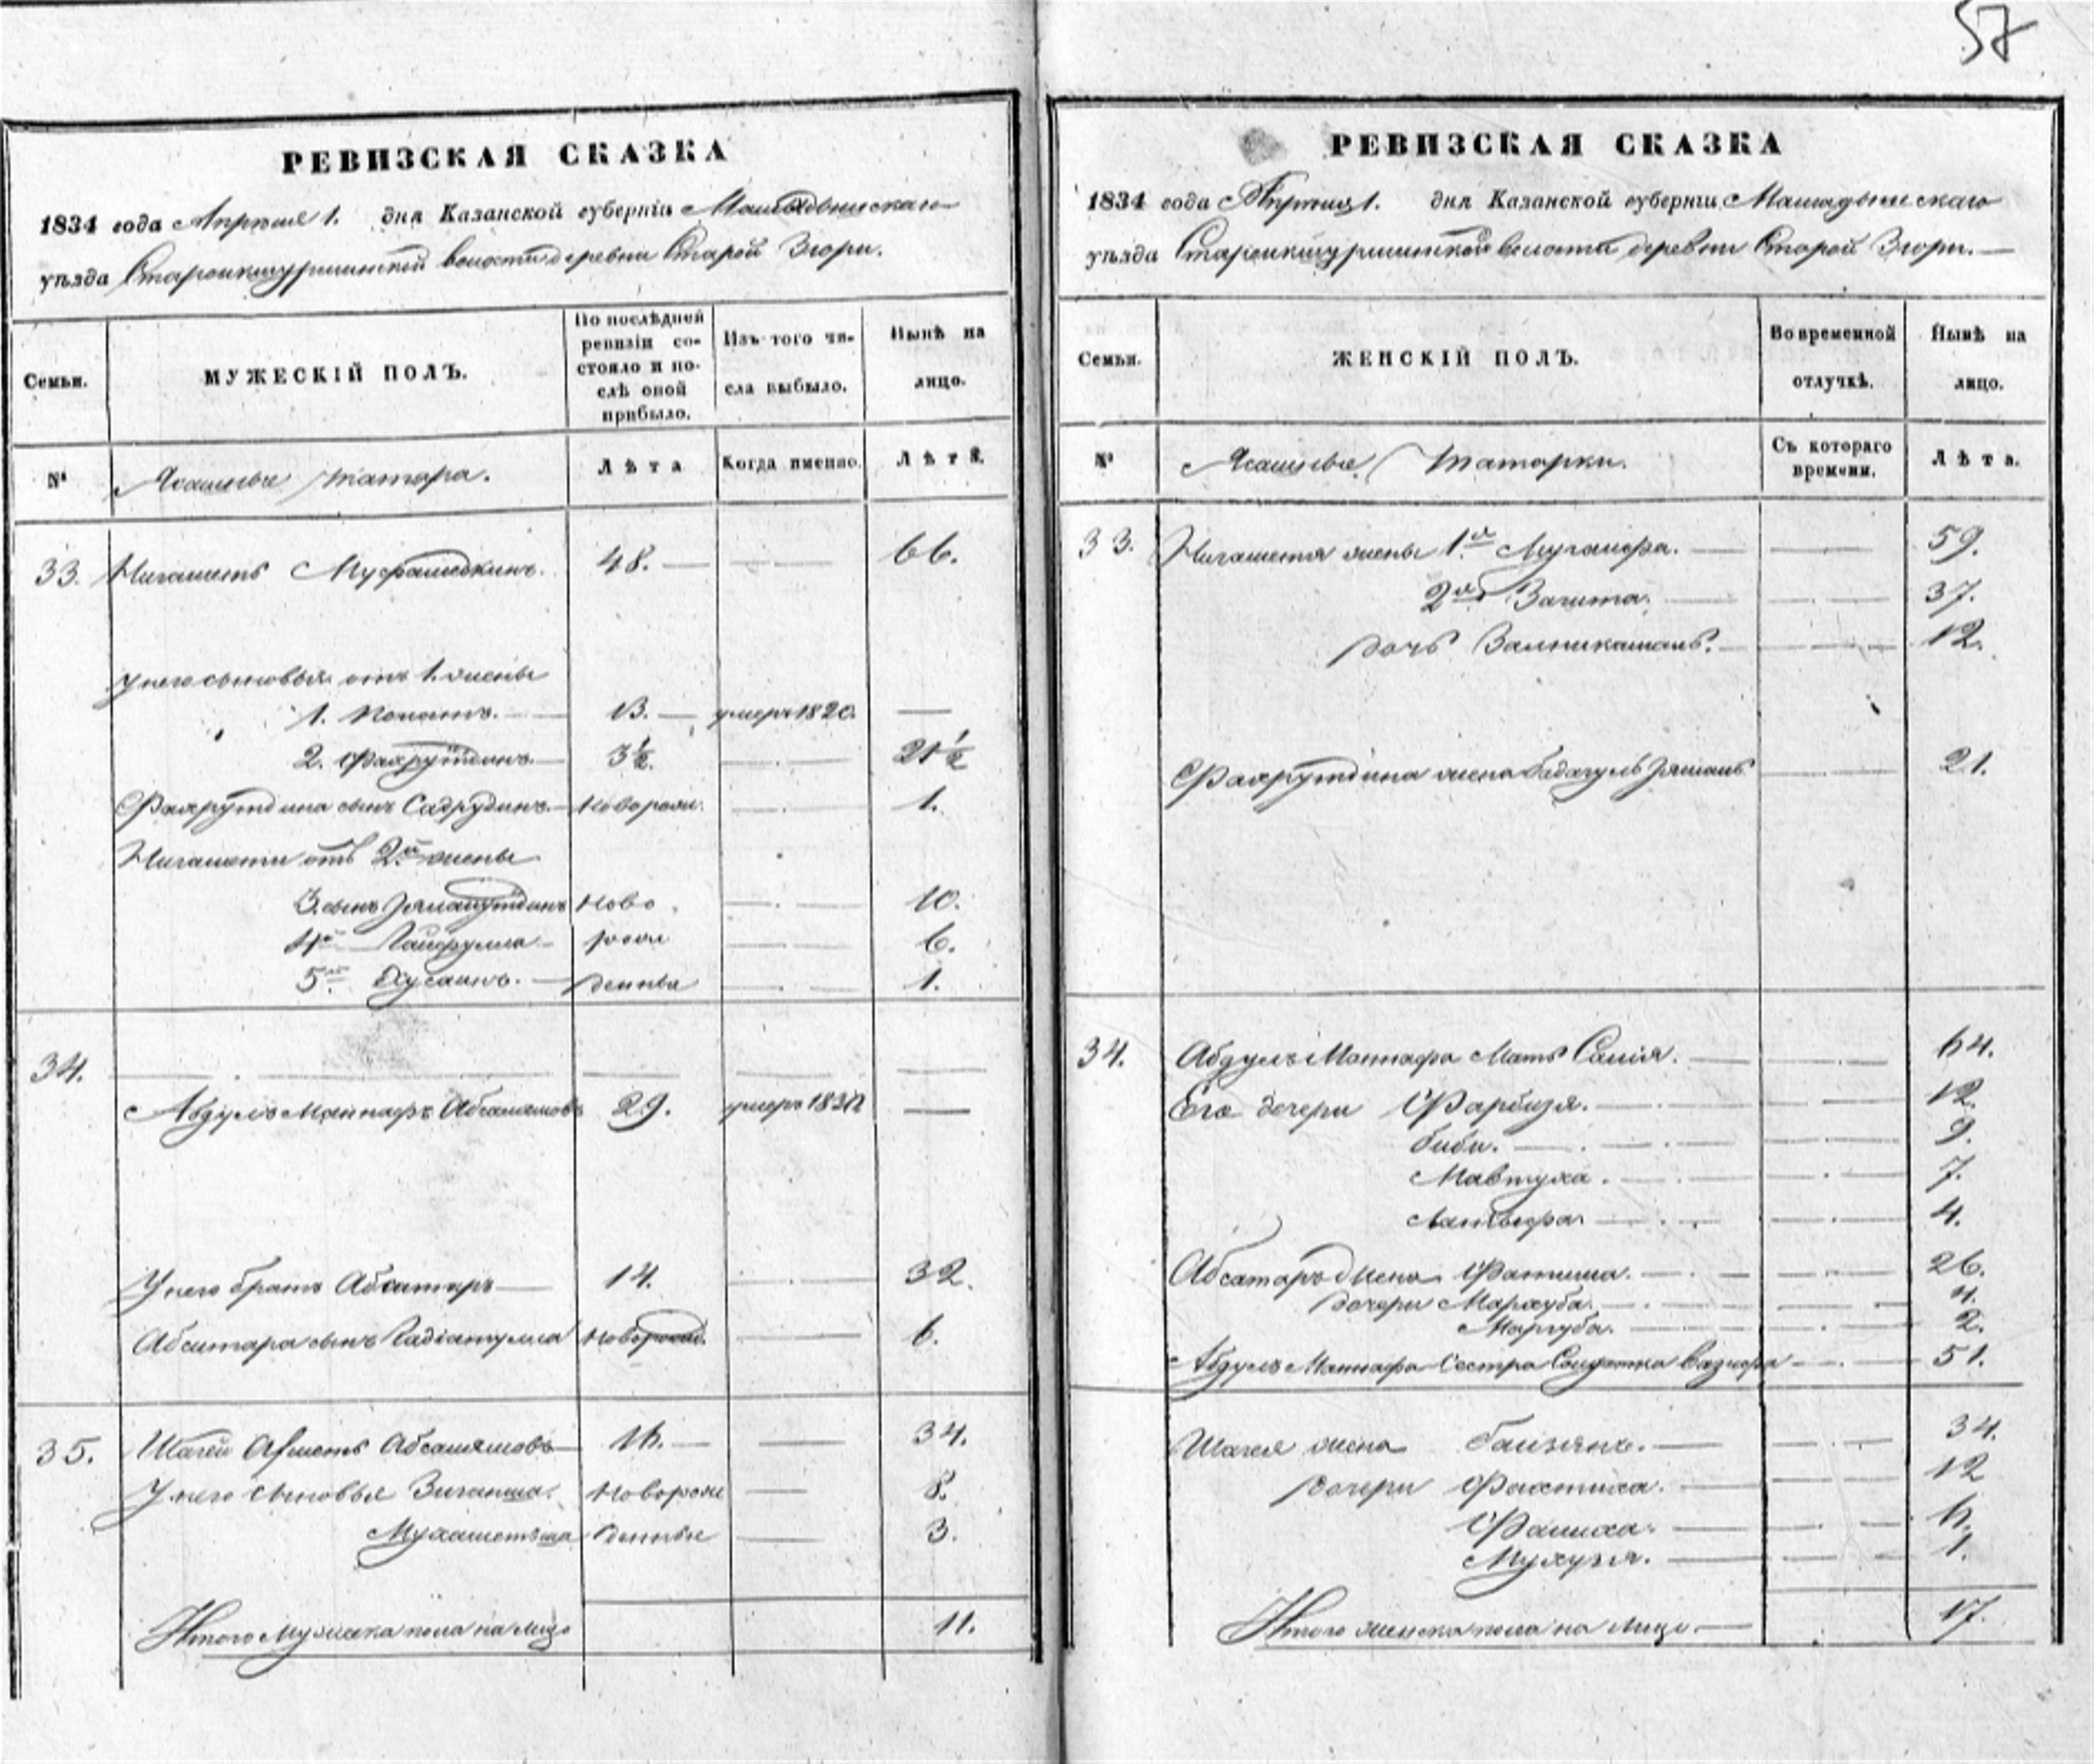 57
РЕВИЗСКАЯ СКАЗКА
1834 года Апреля 1. дня Казанской губерніи Мамадышскаго
уѣзда волости деревни Старой Зюри.
Семьи.
МУЖЕСКІЙ ПОЛЪ.
По послѣдней ревизіи со-
стояло и по-
слѣ оной
прибыло.
Изъ того чи-
сла выбыло.
Нынѣ на
лицо.
№
Ясашные татара.
Лѣта
Когда именно.
Лѣта.
33. Нигаметь 48. — — 66.
у него сыновья от 1. жены
1. — 13. — умеръ 1820. —
2. Фахрутдинъ — 3½. — 21½
Фахрутдина сынъ Садрудинъ — Новорож. — 1.
Нигамети отъ 2й жены
3. сынъ Ново — 10.
4й Хайрулла — рож — 6.
5й Хусаинъ. — денные — 1.
34.
Абдулъ Маннафъ 29. умеръ —
У него братъ Абсатаръ — 14. — 32.
Абсатара сынъ Гадіатулла Новорожд. — 6.
35. Шагей Ахметь Абсалямовъ — 16. — — 34.
У него сыновья Зиганша. Новорож — 8.
Мухаметьша денные — 3.
Итого мужска пола на лицо 11.
РЕВИЗСКАЯ СКАЗКА
1834 года Апреля 1. дня Казанской губерніи Мамадышскаго
уѣзда волости деревни Старой Зюри. —
Семьи.
ЖЕНСКІЙ ПОЛЪ.
Во временной
отлучкѣ.
Нынѣ на
лицо.
№
Ясашные Татарки.
Съ котораго
времени.
Лѣта.
33. Нигаметя жены 1я — 59.
2я Загита. — 37.
дочь — 12.
Фахрутдина жена — 21.
34. Абдулъ Маннафа Мать Салія. — 64.
Его дочери Фарбизя. — 12.
Биби. — 9.
Мавтуха. — 7.
— 4.
Абсатаръ жена Фатима. — 26.
дочери Мархуба. — 4.
Маргуба. — 2.
Абдулъ Маннафа Сестра Солдатка Вазифа — 51.
Шагея жена — 34.
дочери — 12
— 6.
— 1.
Итого женска пола на лицо. — 17.